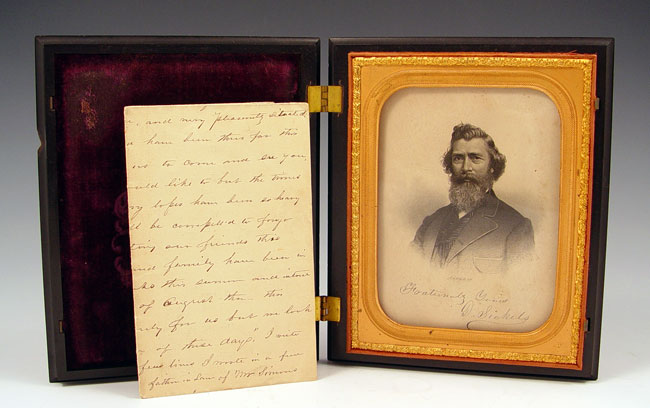 and very pleasantly situated
have been thus far this
to come and see you
would like to but the times
my losses have been so heavy
be compelled to forgo
our friends this
and family have been in
this summer and
of August this
for us but we look
of these days". I
few lines I wrote in a few
of Mr Simons
Fraternally Yours
D. Sickels